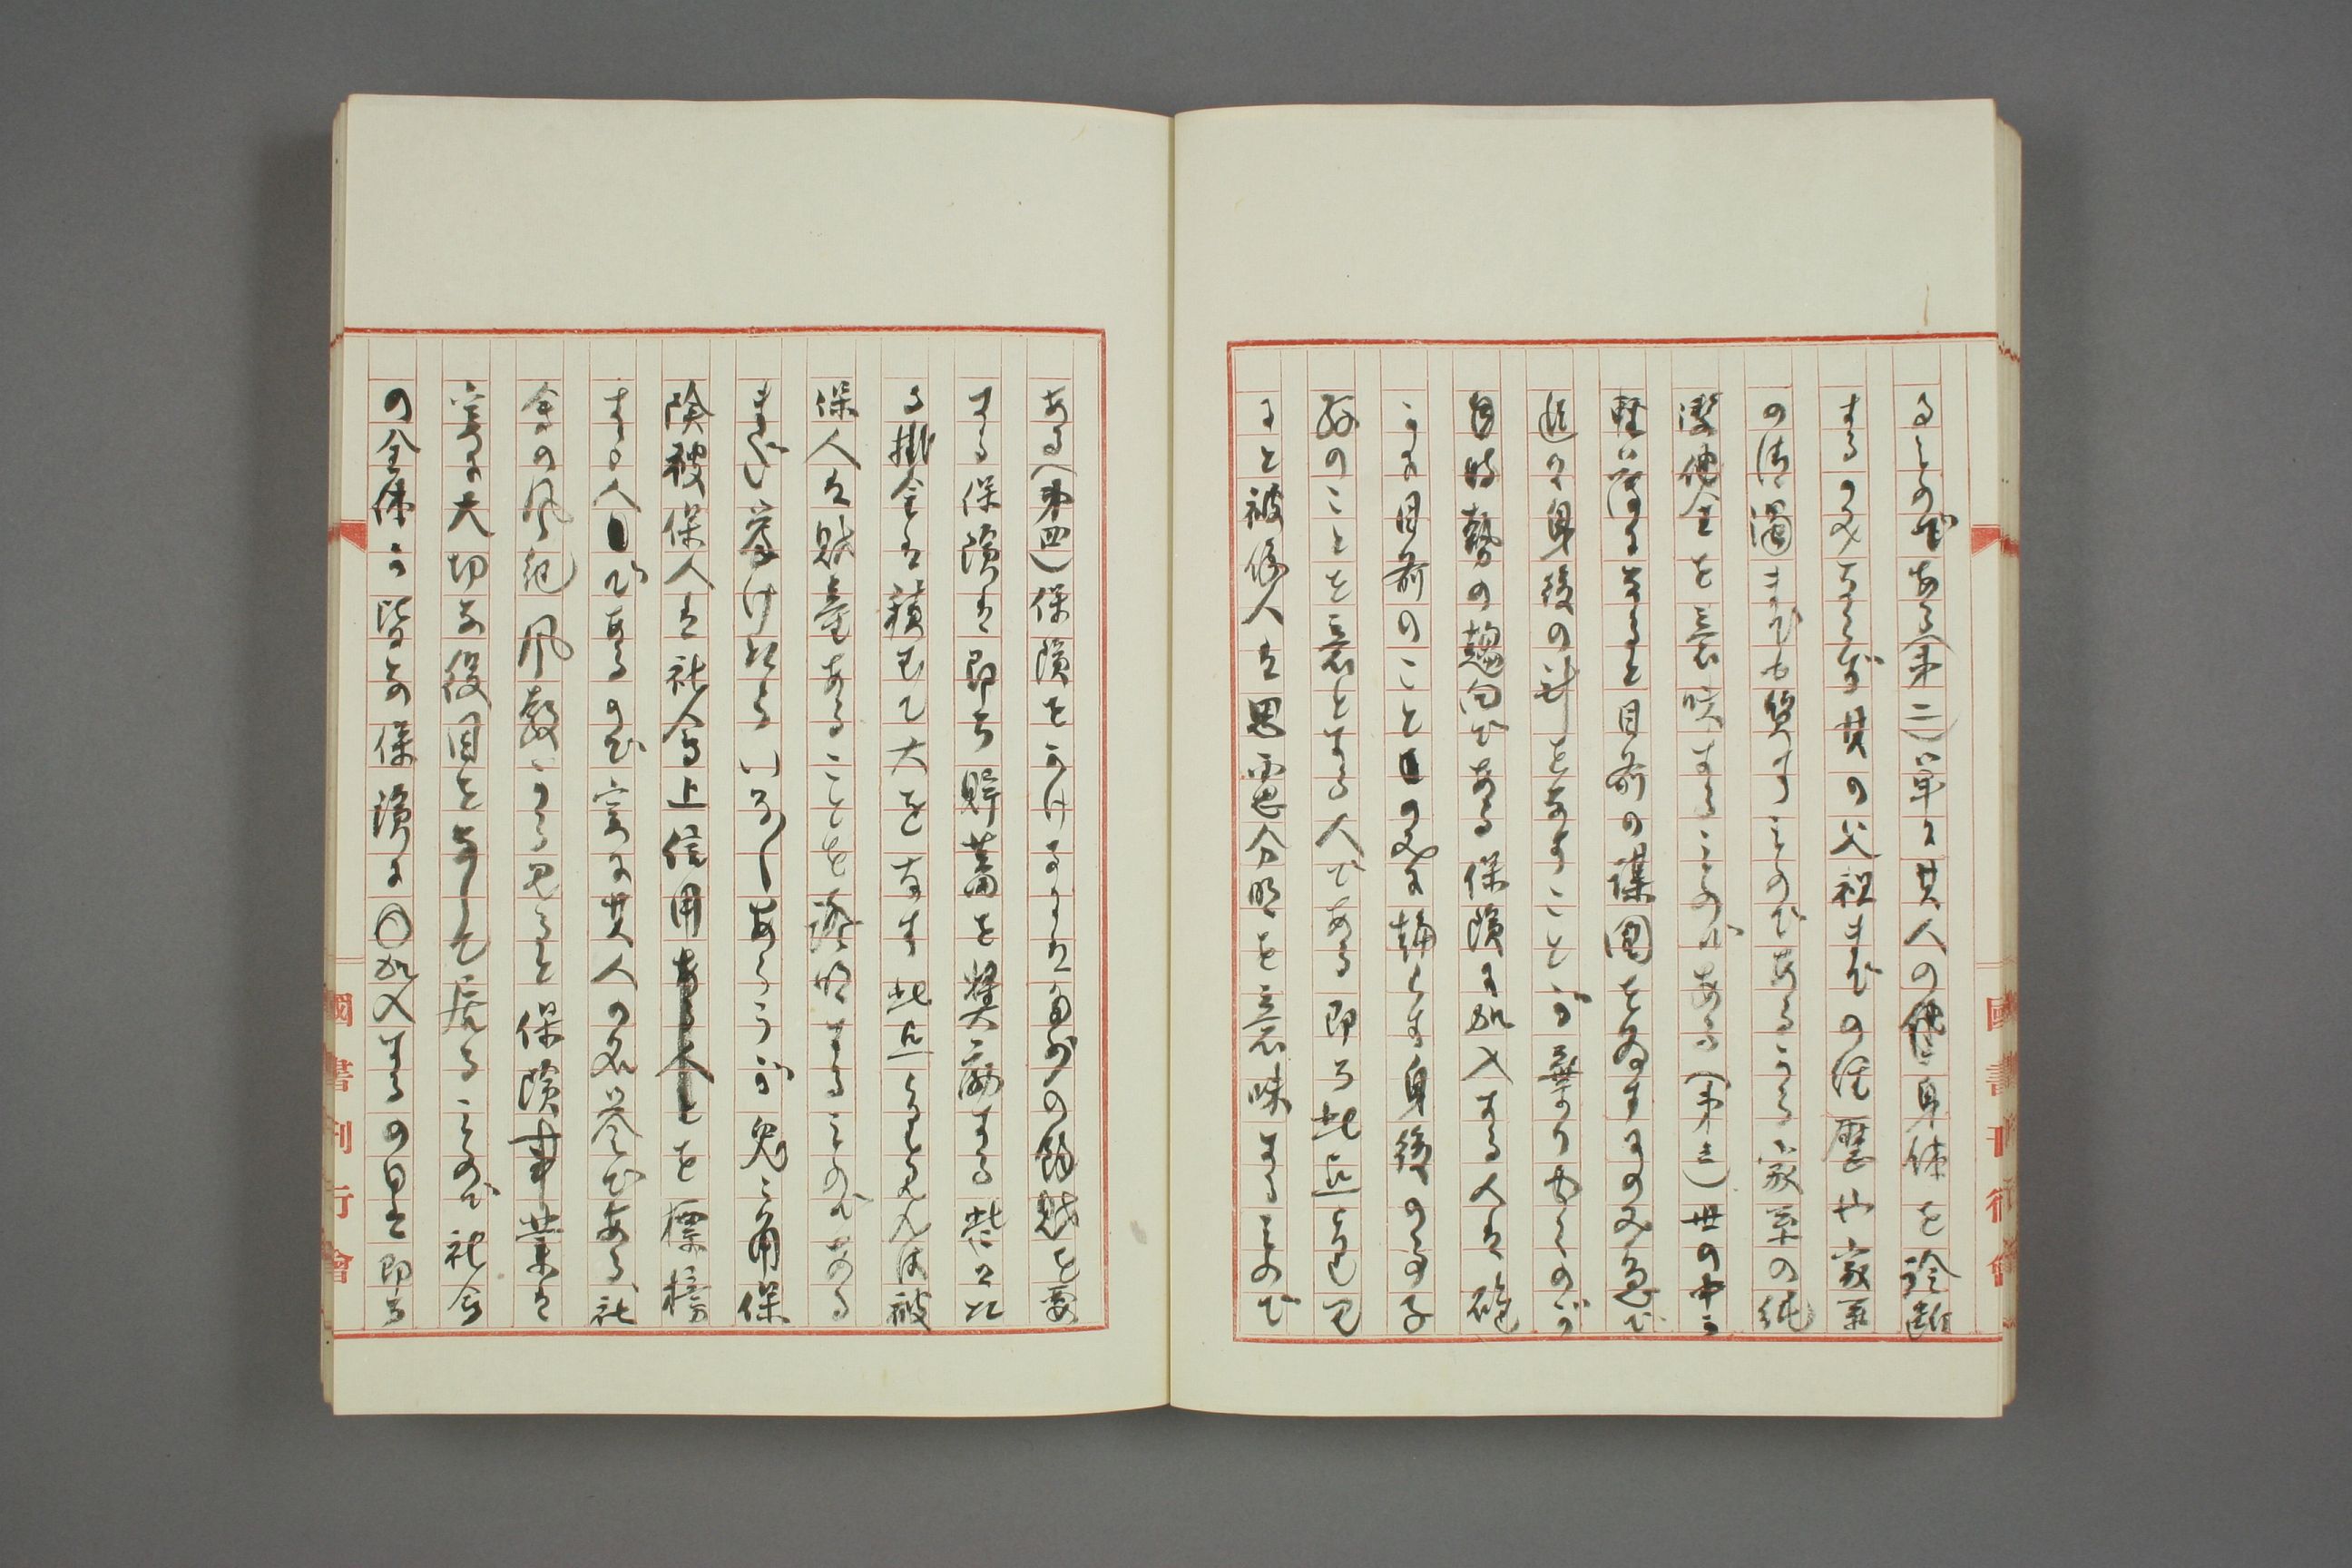 るものである(第二)単に其人の健康身体を診断
するのみならず其の父祖までの経歴や家系
の清濁までも質すものであるから家系の純
潔健全を意味することのである(第三)世の中の
軽薄なると目前の謀図を為すもののみ急で
退て身後の計を為すことが棄りゆくのが
目時勢の趨向である保険に加入する人は确
に目前のことのみに齷齪せず身後の為子
孫のことを意とする人である即ち此点より見
ると被保人は思慮分明を意味するもので
ある(第四)保険をうけるには多少の余財を要
する保険は即ち貯蓄を奨励する些になれ
る掛金を積むて大をなす此点よりも又は被
保人は財産あることを證明するものである
まだ挙げたらいくらもあらうが兎に角保
険被保人は社会上信用ある人を標榜
する人である のが実に其人の名誉である社
会の風紀風教から見ると保険事業は
実に大切な役目をもして居るもので社会
の全体が皆なの保険に加入するの日は即ち
國書刊行會
國書刊行會